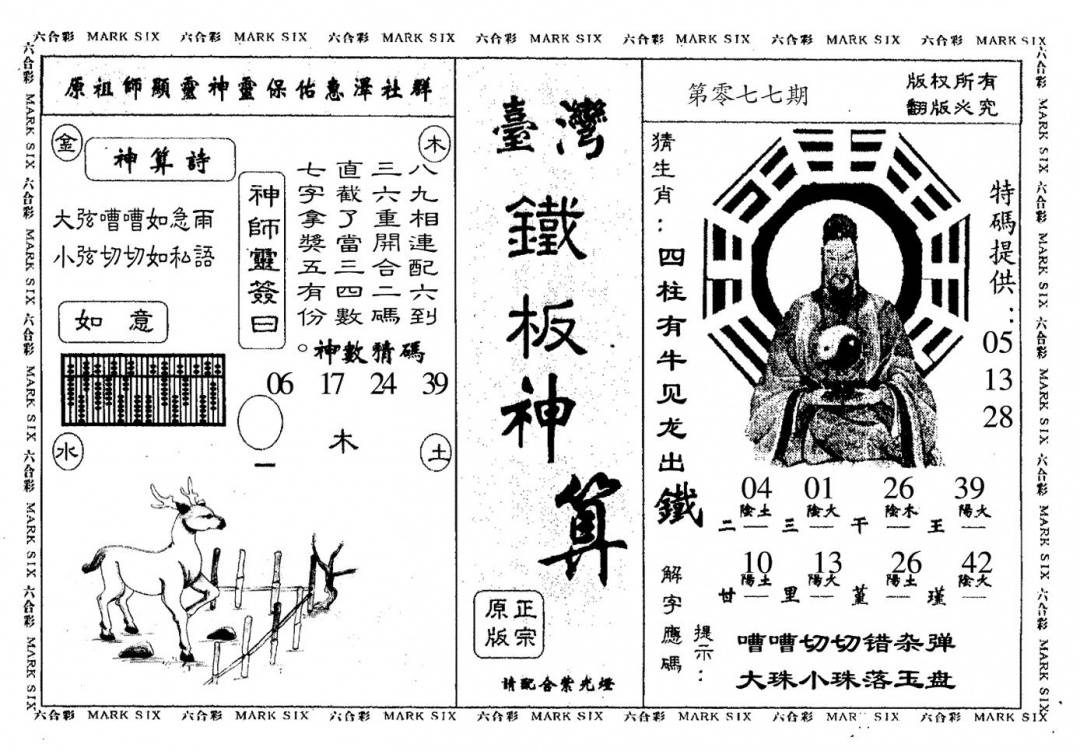 六合彩 MARK SIX 六合彩 MARK SIX 六合彩 MARK SIX 六合彩 MARK SIX 六合彩 MARK SIX 六合彩 MARK SIX 六合彩 MARK SIX
六合彩 MARK SIX 六合彩 MARK SIX 六合彩 MARK SIX 六合彩 MARK SIX 六合彩 MARK SIX
原祖師顯靈神靈保佑惠澤社群
金
木
神算詩
大弦嘈嘈如急雨
小弦切切如私語
如意
神師靈簽曰
八九相連配六到
三六重開合二碼
直截了當三四數
七字拿獎五有份。
神數猜碼
06 17 24 39
木
水
土
一
臺灣
鐵板神算
正宗
原版
請配合紫光燈
第零七七期
版权所有
翻版必究
猜生肖：四柱有牛见龙出鐵
特碼提供：
05
13
28
04 01 26 39
陰土 陰火 陰木 陽火
二 三 干 王
10 13 26 42
陽土 陽火 陽土 陰火
甘 里 堇 瑾
解字應碼
提示：
嘈嘈切切错杂弹
大珠小珠落玉盘
六合彩 MARK SIX 六合彩 MARK SIX 六合彩 MARK SIX 六合彩 MARK SIX 六合彩 MARK SIX
六合彩 MARK SIX 六合彩 MARK SIX 六合彩 MARK SIX 六合彩 MARK SIX 六合彩 MARK SIX 六合彩 MARK SIX 六合彩 MARK SIX